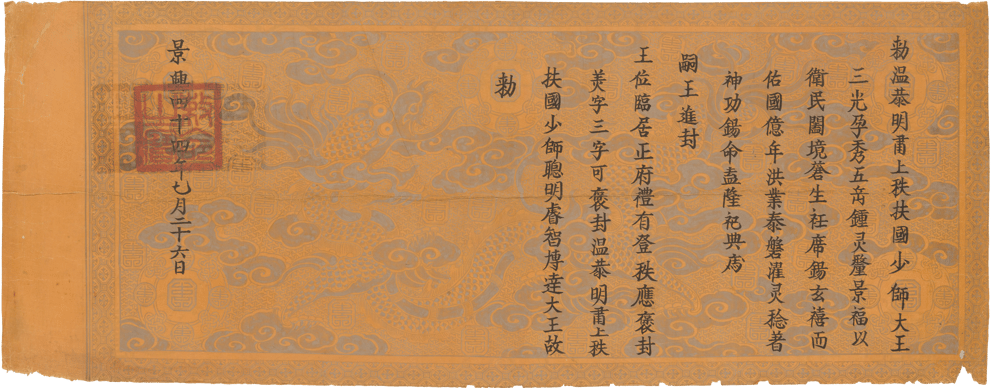 勑温恭明肅上秩扶國少師大王
三光孕秀五𠫅鍾灵釐景福以
衛民闔境蒼生衽席錫玄禧而
佑國億年洪業泰磐濯灵稔著
神功錫命盍隆祀典為
嗣王進封
王位臨居正府禮有登秩應褒封
美字三字可褒封温恭明肅上秩
扶國少師聰明睿智博達大王故
勑
景興四十四年七月二十六日